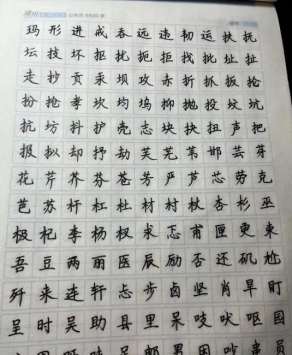 玛形进戒吞远违韧运扶抚
坛技坏抠扰扼拒找批址扯
走抄贡汞坝攻赤折抓扳抡
扮抢孝坎均坞抑抛投坟坑
抗坊抖护壳志块抉扭声把
报拟却抒劫芙芜苇邯芸芽
花芹芥芬苍芳严芦芯劳克
芭苏杆杠杜材村杖杏杉巫
极杞李杨杈求忑甫匣更束
吾豆两丽医辰励否还矶尬
歼来连轩忐步卤坚肖旱盯
呈时吴助县里呆吱吠呕园